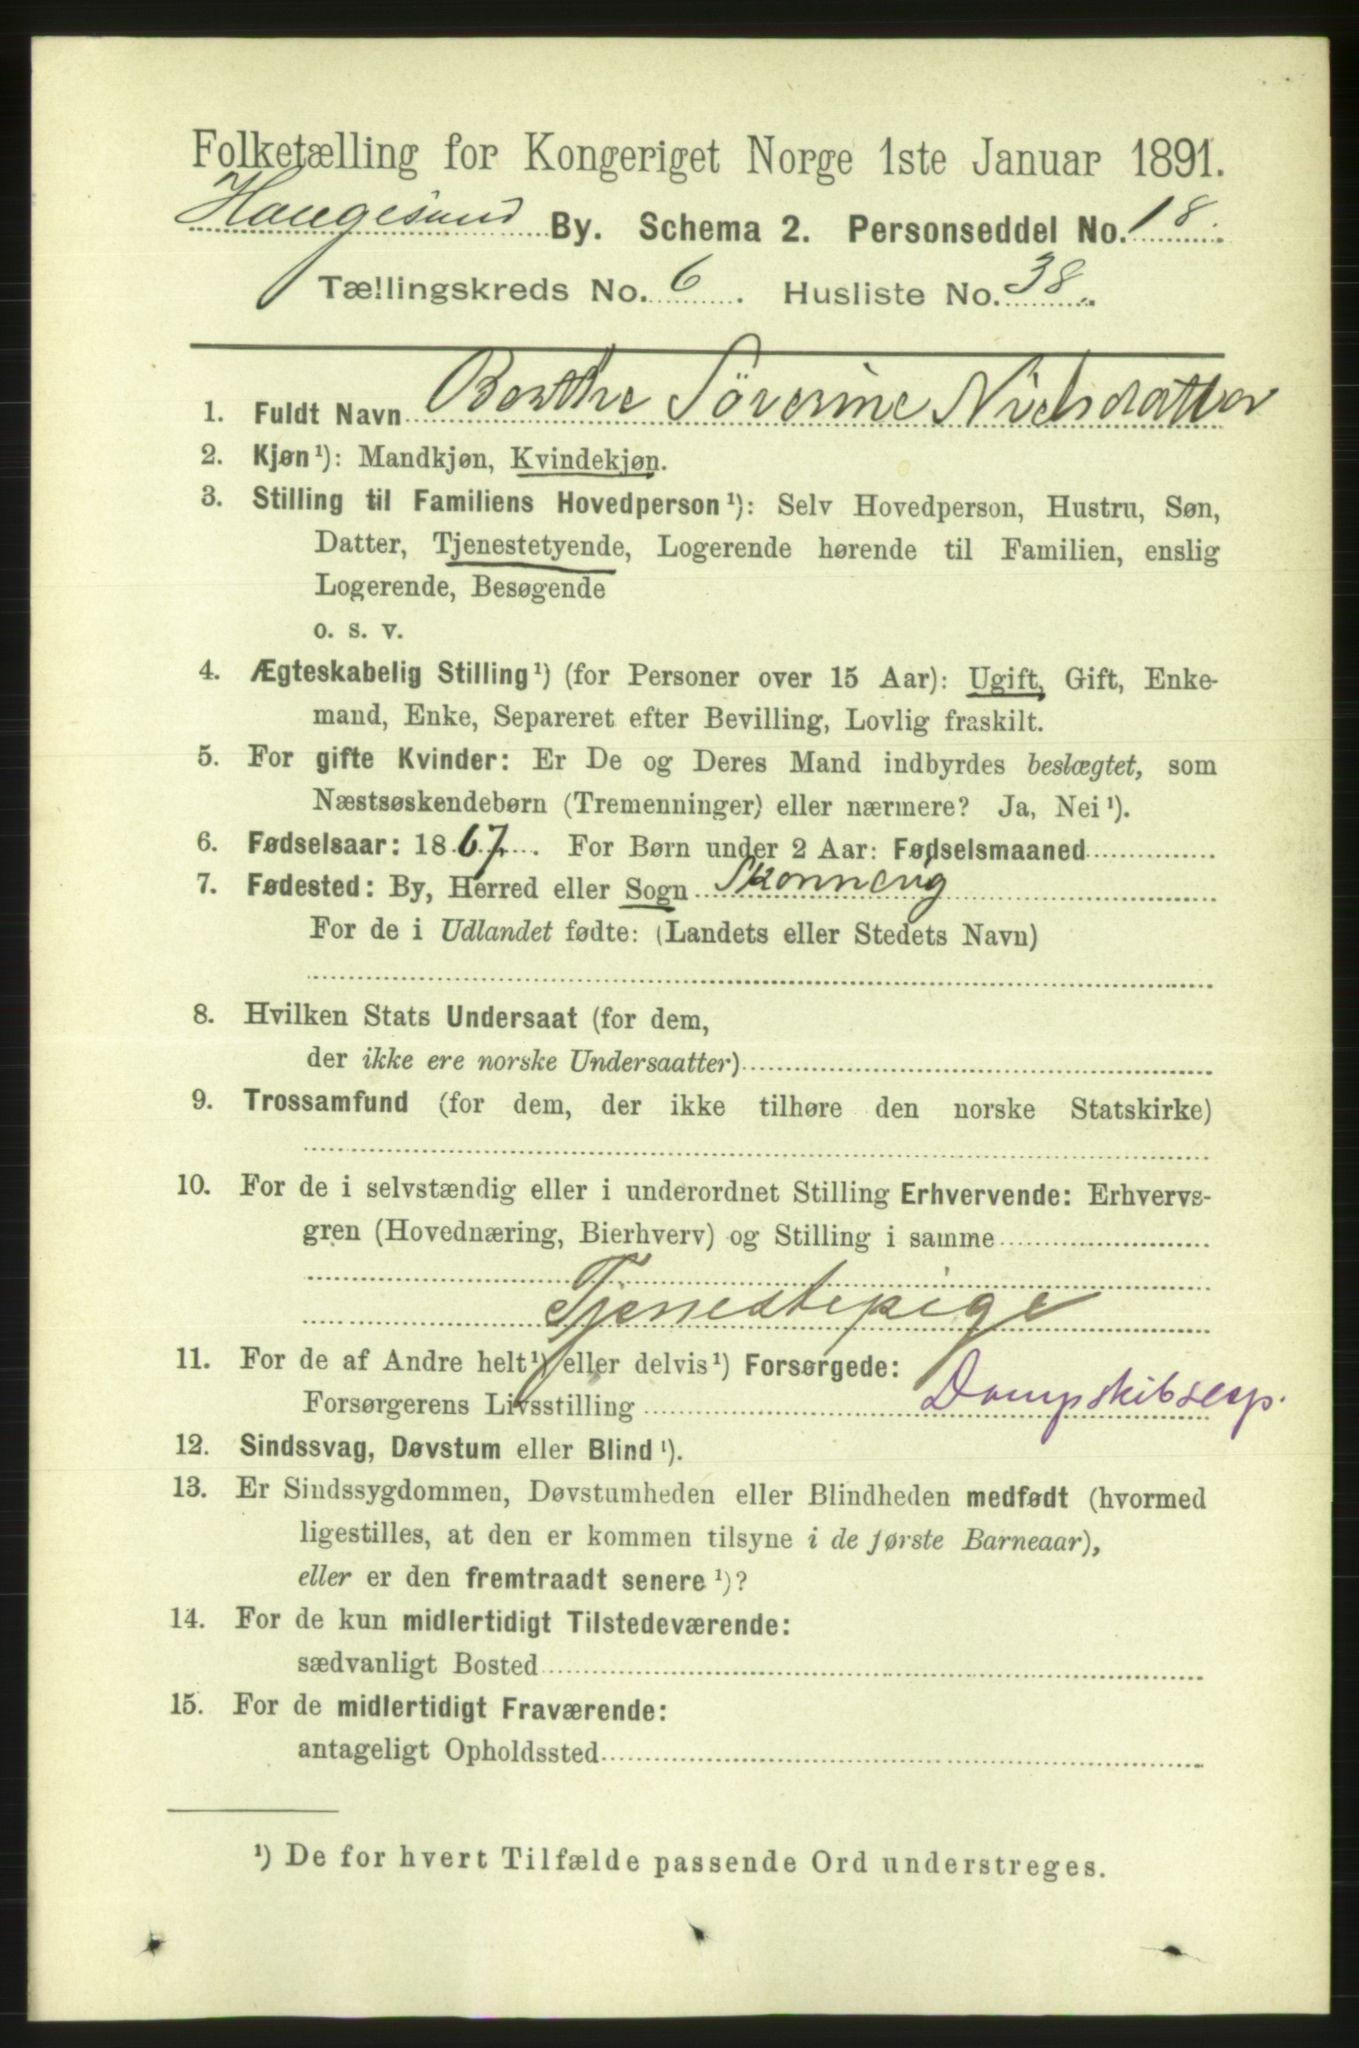 Folketælling for Kongeriget Norge 1ste Januar 1891.
Haugesund By. Schema 2. Personseddel No. 18.
Tællingskreds No. 6. Husliste No. 38.
1. Fuldt Navn Berthe Søverine Nielsdatter
2. Kjøn¹): Mandkjøn, Kvindekjøn.
3. Stilling til Familiens Hovedperson¹): Selv Hovedperson, Hustru, Søn,
Datter, Tjenestetyende, Logerende hørende til Familien, enslig
Logerende, Besøgende
o. s. v.
4. Ægteskabelig Stilling¹) (for Personer over 15 Aar): Ugift, Gift, Enke-
mand, Enke, Separeret efter Bevilling, Lovlig fraskilt.
5. For gifte Kvinder: Er De og Deres Mand indbyrdes beslægtet, som
Næstsøskendebørn (Tremenninger) eller nærmere? Ja, Nei¹).
6. Fødselsaar: 1867. For Børn under 2 Aar: Fødselsmaaned
7. Fødested: By, Herred eller Sogn Skonnevig
For de i Udlandet fødte: (Landets eller Stedets Navn)
8. Hvilken Stats Undersaat (for dem,
der ikke ere norske Undersaatter)
9. Trossamfund (for dem, der ikke tilhøre den norske Statskirke)
10. For de i selvstændig eller i underordnet Stilling Erhvervende: Erhvervs-
gren (Hovednæring, Bierhverv) og Stilling i samme
Tjenestepige
11. For de af Andre helt¹) eller delvis¹) Forsørgede:
Forsørgerens Livsstilling Dampskibsexp.
12. Sindssvag, Døvstum eller Blind¹).
13. Er Sindssygdommen, Døvstumheden eller Blindheden medfødt (hvormed
ligestilles, at den er kommen tilsyne i de første Barneaar),
eller er den fremtraadt senere¹)?
14. For de kun midlertidigt Tilstedeværende:
sædvanligt Bosted
15. For de midlertidigt Fraværende:
antageligt Opholdssted
¹) De for hvert Tilfælde passende Ord understreges.